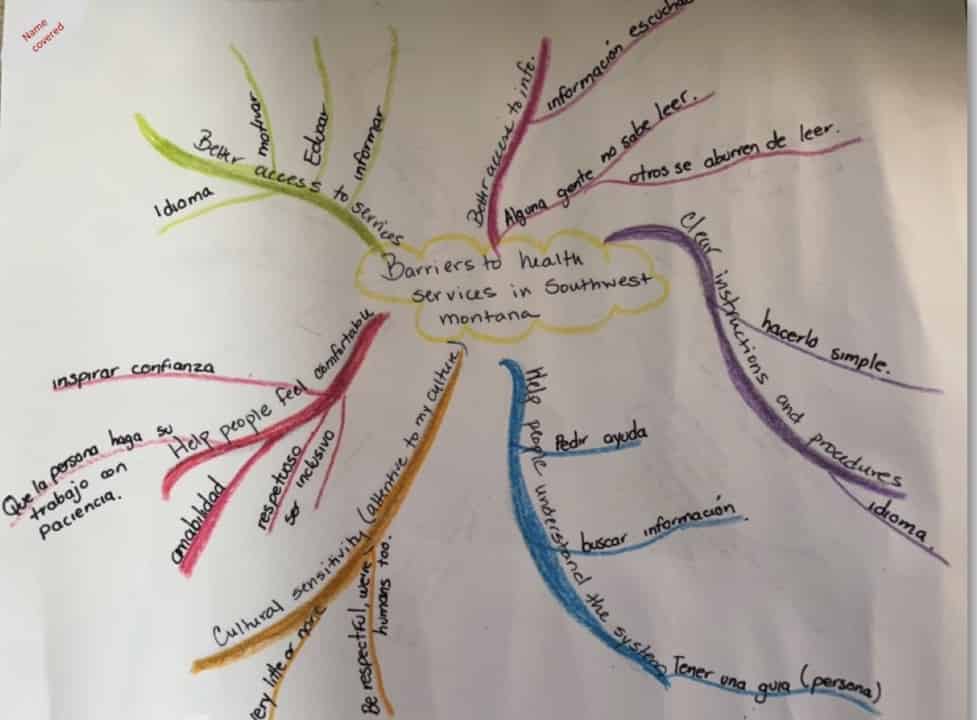 Name
covered
Barriers to health
services in Southwest
montana
Better access to services
Idioma
motivar
Educar
informar
Better access to info.
información
Alguna gente no sabe leer.
otros se aburren de leer.
Clear instructions and procedures
hacerlo simple.
idioma.
Help people understand the system
Pedir ayuda
buscar información.
Tener una guia (persona)
Cultural sensitivity (attentive to my culture)
little or none
Be respectful, we're
humans too.
Help people feel comfortable
inspirar confianza
Que la persona haga su
trabajo con
paciencia.
amabilidad
respetuoso
ser inclusivo